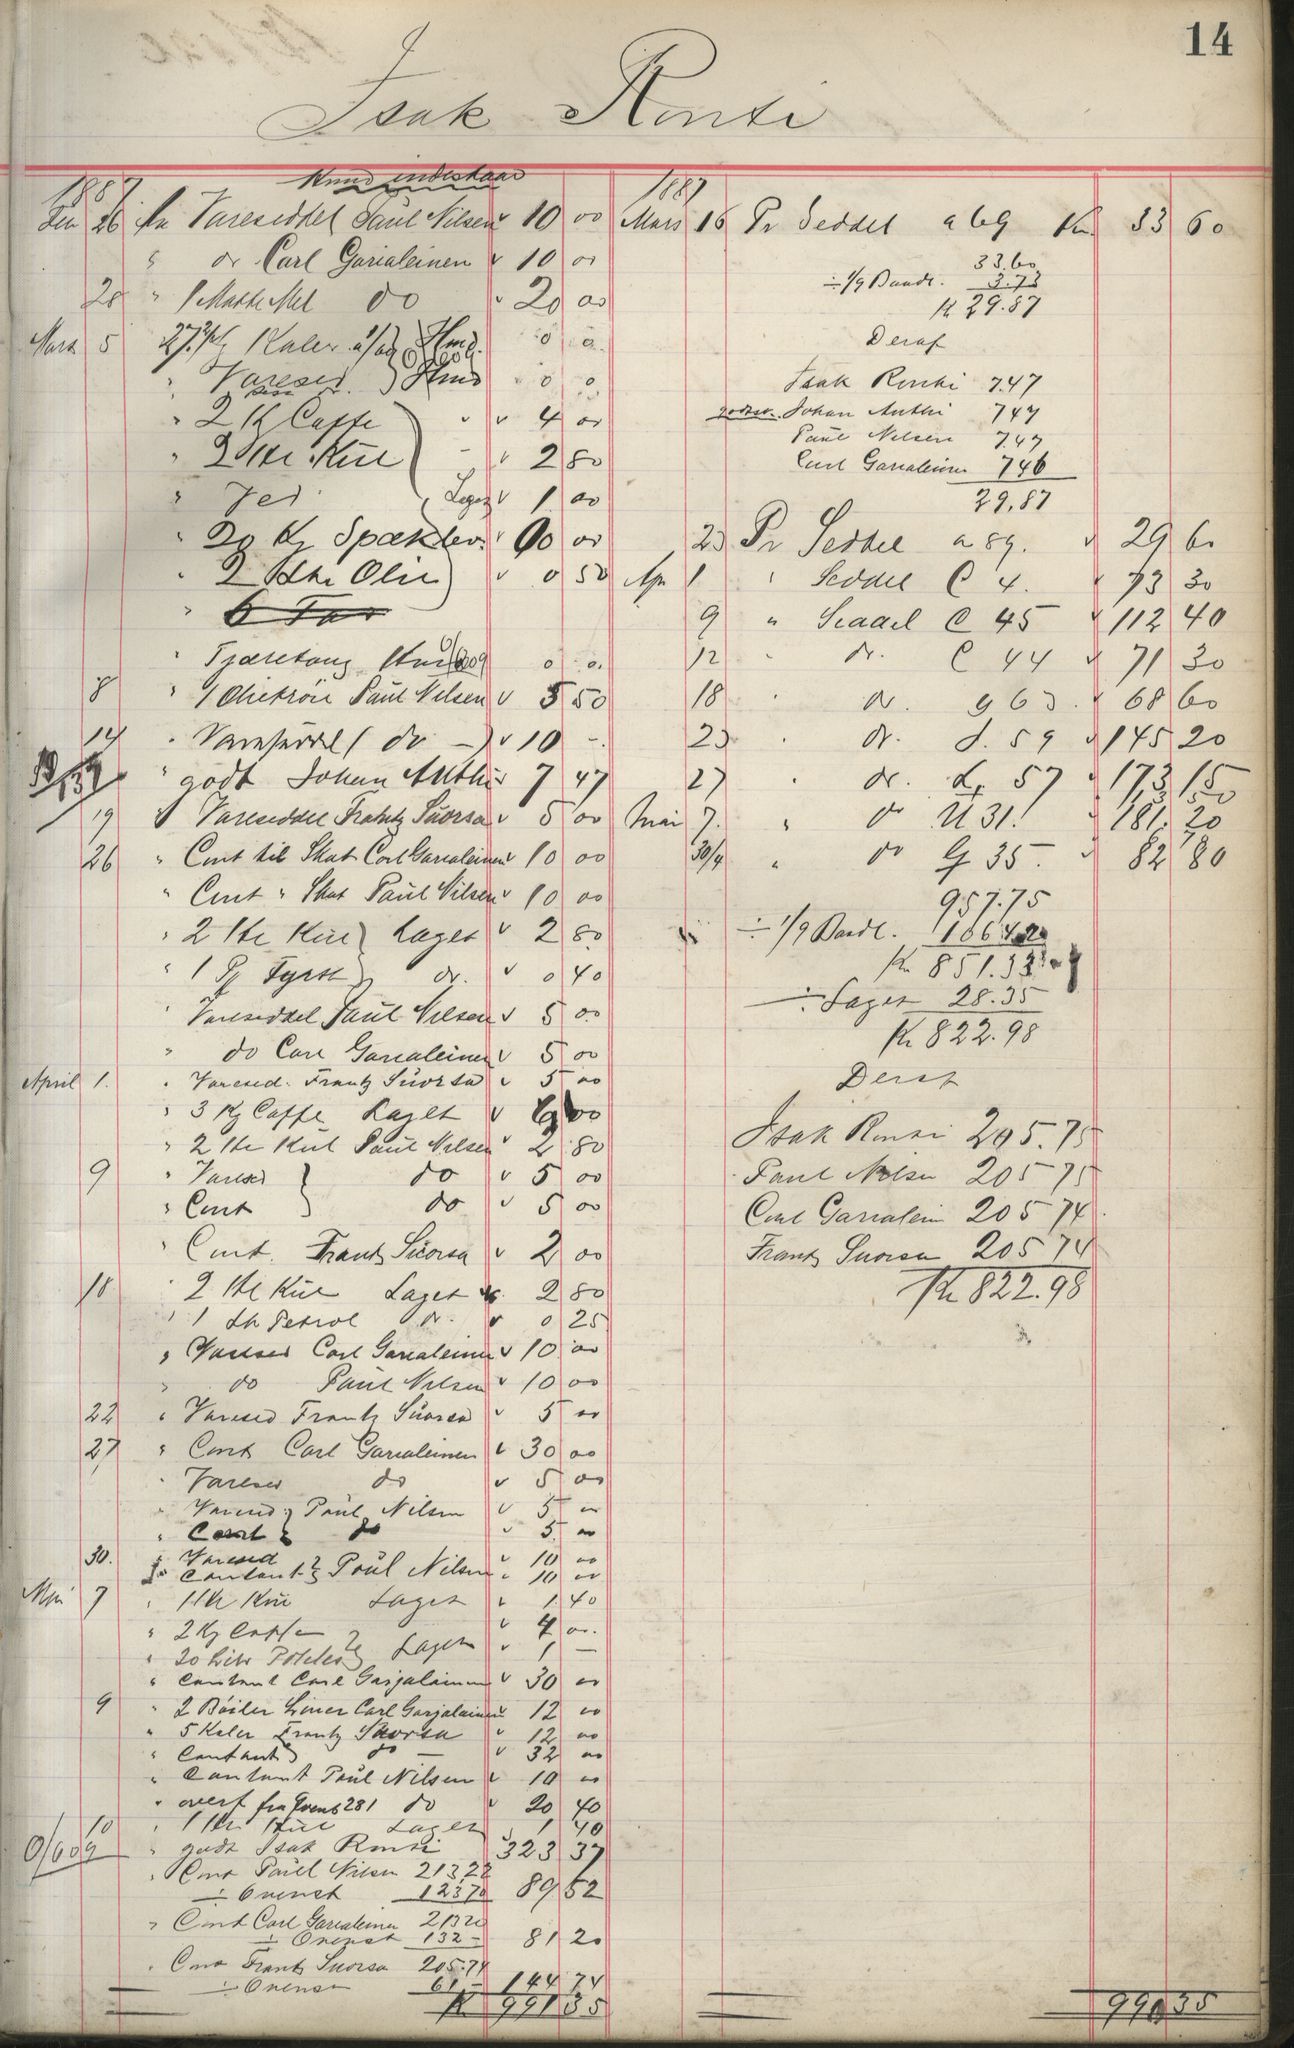 14
Isak Ronti
1887
Knud indestaar
Feb 26 Pr Vareseddel Paul Nilsen 10 00
" do Carl Garialeinen 10 00
28 " 1 Matte Mel do 20 00
Mars 5
" Varesed
" 2 Kg Caffe 4 00
" 2 Htr Kul 2 80
" Ved Laget 1 00
" 20 Kg Spæklev. 10 00
" 2 Ltr Olie 0 50
"
" Tjæretoug
8 " 1 Olietröie Paul Nilsen 5 50
14 " Vareseddel (do —) 10 -
" godt Johan Anthi 7 47
19 " Vareseddel Frantz Suorsa 5 00
26 " Cont til Skat Carl Garialeinen 10 00
" Cont " Skat Paul Nilsen 10 00
" 2 Htr Kul Laget 2 80
" 1 Pk Fyrst do. 0 40
" Vareseddel Paul Nilsen 5 00
" do Carl Garialeinen 5 00
April 1. " Varesed. Frantz Suorsa 5 00
" 3 Kg Caffe Laget 6 00
" 2 Htr Kul Paul Nilsen 2 80
9 " Varesed do 5 00
" Cont do 5 00
" Cont. Frantz Suorsa 2 00
18 " 2 Htr Kul Laget 2 80
" 1 Ltr Petrol do. 0 25
" Varesed Carl Garialeinen 10 00
" do Paul Nilsen 10 00
22 " Varesed Frantz Suorsa 5 00
27 " Cont Carl Garialeinen 30 00
" Varesed do 5 00
" Varesed Paul Nilsen 5 00
" Cont do 5 00
30. " Varesed 10 00
" Contant Paul Nilsen 10 00
Mai 7 " 1 Htr Kul Laget 1 40
" 2 Kg Caffe 4 00
" 20 Liter Poteter Laget 1 —
" Contant Carl Garjalainen 30 00
9 " 2 Böiler Liner Carl Garjalainen 12 00
" 5 Kaler Frantz Suorsa 12 00
" Contant do — 32 00
" Contant Paul Nilsen 10 00
" overf fra Qvens 281 do 20 40
10 " 1 Htr Kul Laget 1 40
0/609 " godt Isak Ronti 323 37
" Cont Paul Nilsen 213,22
÷ Ovenst 123 70 89 52
" Cont Carl Garialeinen 213 20
÷ Ovenst 132 - 81 20
" Cont Frantz Suorsa 205.74
÷ Ovenst 61 - 144 74
Kr 991 35
1887
Mars 16 Pr Seddel a 69 Kr. 33 60
33.60
÷ 1/9 Baadl. 3.73
Kr 29.87
Deraf
Isak Ronti 7.47
godskr. Johan Anthi 7 47
Paul Nilsen 7.47
Carl Garialeinen 7 46
29.87
23 Pr Seddel a 89. 29 60
Apr 1 " Seddel C 4. 73 30
9 " Seddel C 45 112 40
12 " do. C 44 71 30
18 " do. g 63. 68 60
23 " do. d. 59 145 20
27 " do. L. 57 173 15
Mai 7. " do U 31. 181 20
30/4 " do G 35. 82 80
957.75
÷ 1/9 Baadl. 106 42
Kr 851.33
÷ Laget 28.35
Kr 822.98
Deraf
Isak Ronti 205.75
Paul Nilsen 205 75
Carl Garialein 205 74
Frantz Suorsa 205 74
Kr 822.98
991 35